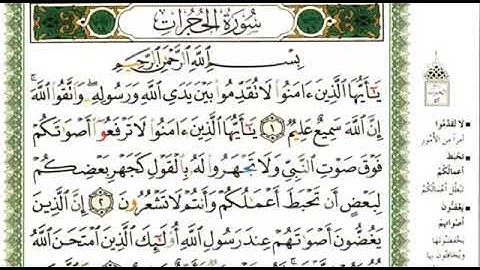 سُورَةُ الْحُجُرَاتِ
بِسْمِ ٱللَّهِ ٱلرَّحْمَٰنِ ٱلرَّحِيمِ
يَٰٓأَيُّهَا ٱلَّذِينَ ءَامَنُوا۟ لَا تُقَدِّمُوا۟ بَيْنَ يَدَىِ ٱللَّهِ وَرَسُولِهِۦ ۖ وَٱتَّقُوا۟ ٱللَّهَ ۚ
إِنَّ ٱللَّهَ سَمِيعٌ عَلِيمٌ ١ يَٰٓأَيُّهَا ٱلَّذِينَ ءَامَنُوا۟ لَا تَرْفَعُوٓا۟ أَصْوَٰتَكُمْ
فَوْقَ صَوْتِ ٱلنَّبِىِّ وَلَا تَجْهَرُوا۟ لَهُۥ بِٱلْقَوْلِ كَجَهْرِ بَعْضِكُمْ
لِبَعْضٍ أَن تَحْبَطَ أَعْمَٰلُكُمْ وَأَنتُمْ لَا تَشْعُرُونَ ٢ إِنَّ ٱلَّذِينَ
يَغُضُّونَ أَصْوَٰتَهُمْ عِندَ رَسُولِ ٱللَّهِ أُو۟لَٰٓئِكَ ٱلَّذِينَ ٱمْتَحَنَ ٱللَّهُ
لا تُقَدِّمُوا
أمراً من الأُمورِ
تَحْبَطَ
أَعْمَالُكُمْ
تَبْطُلَ أَعْمَالُكُمْ
يَغُضُّونَ
أَصْوَاتَهُمْ
يَخْفِضُونَهَا
وَيُخَافِتُونَ بِهَا